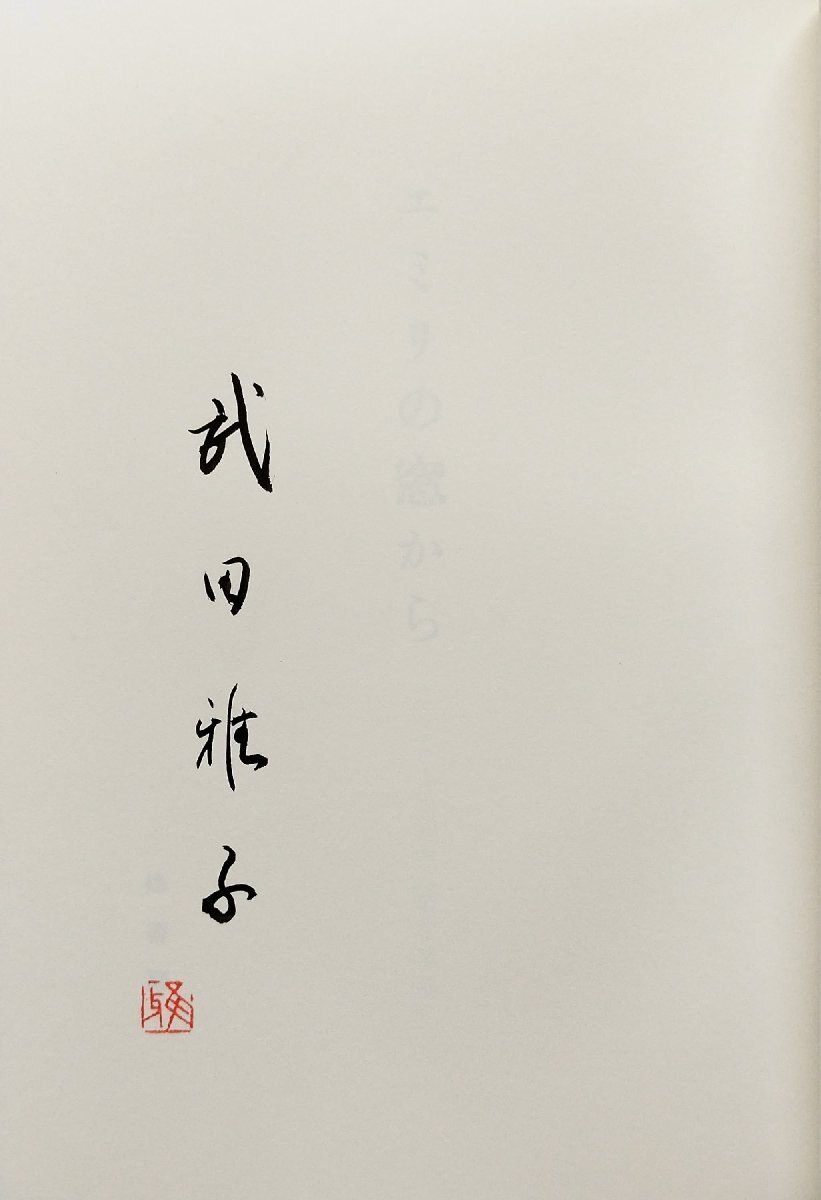 エミリの窓から
武田雅子